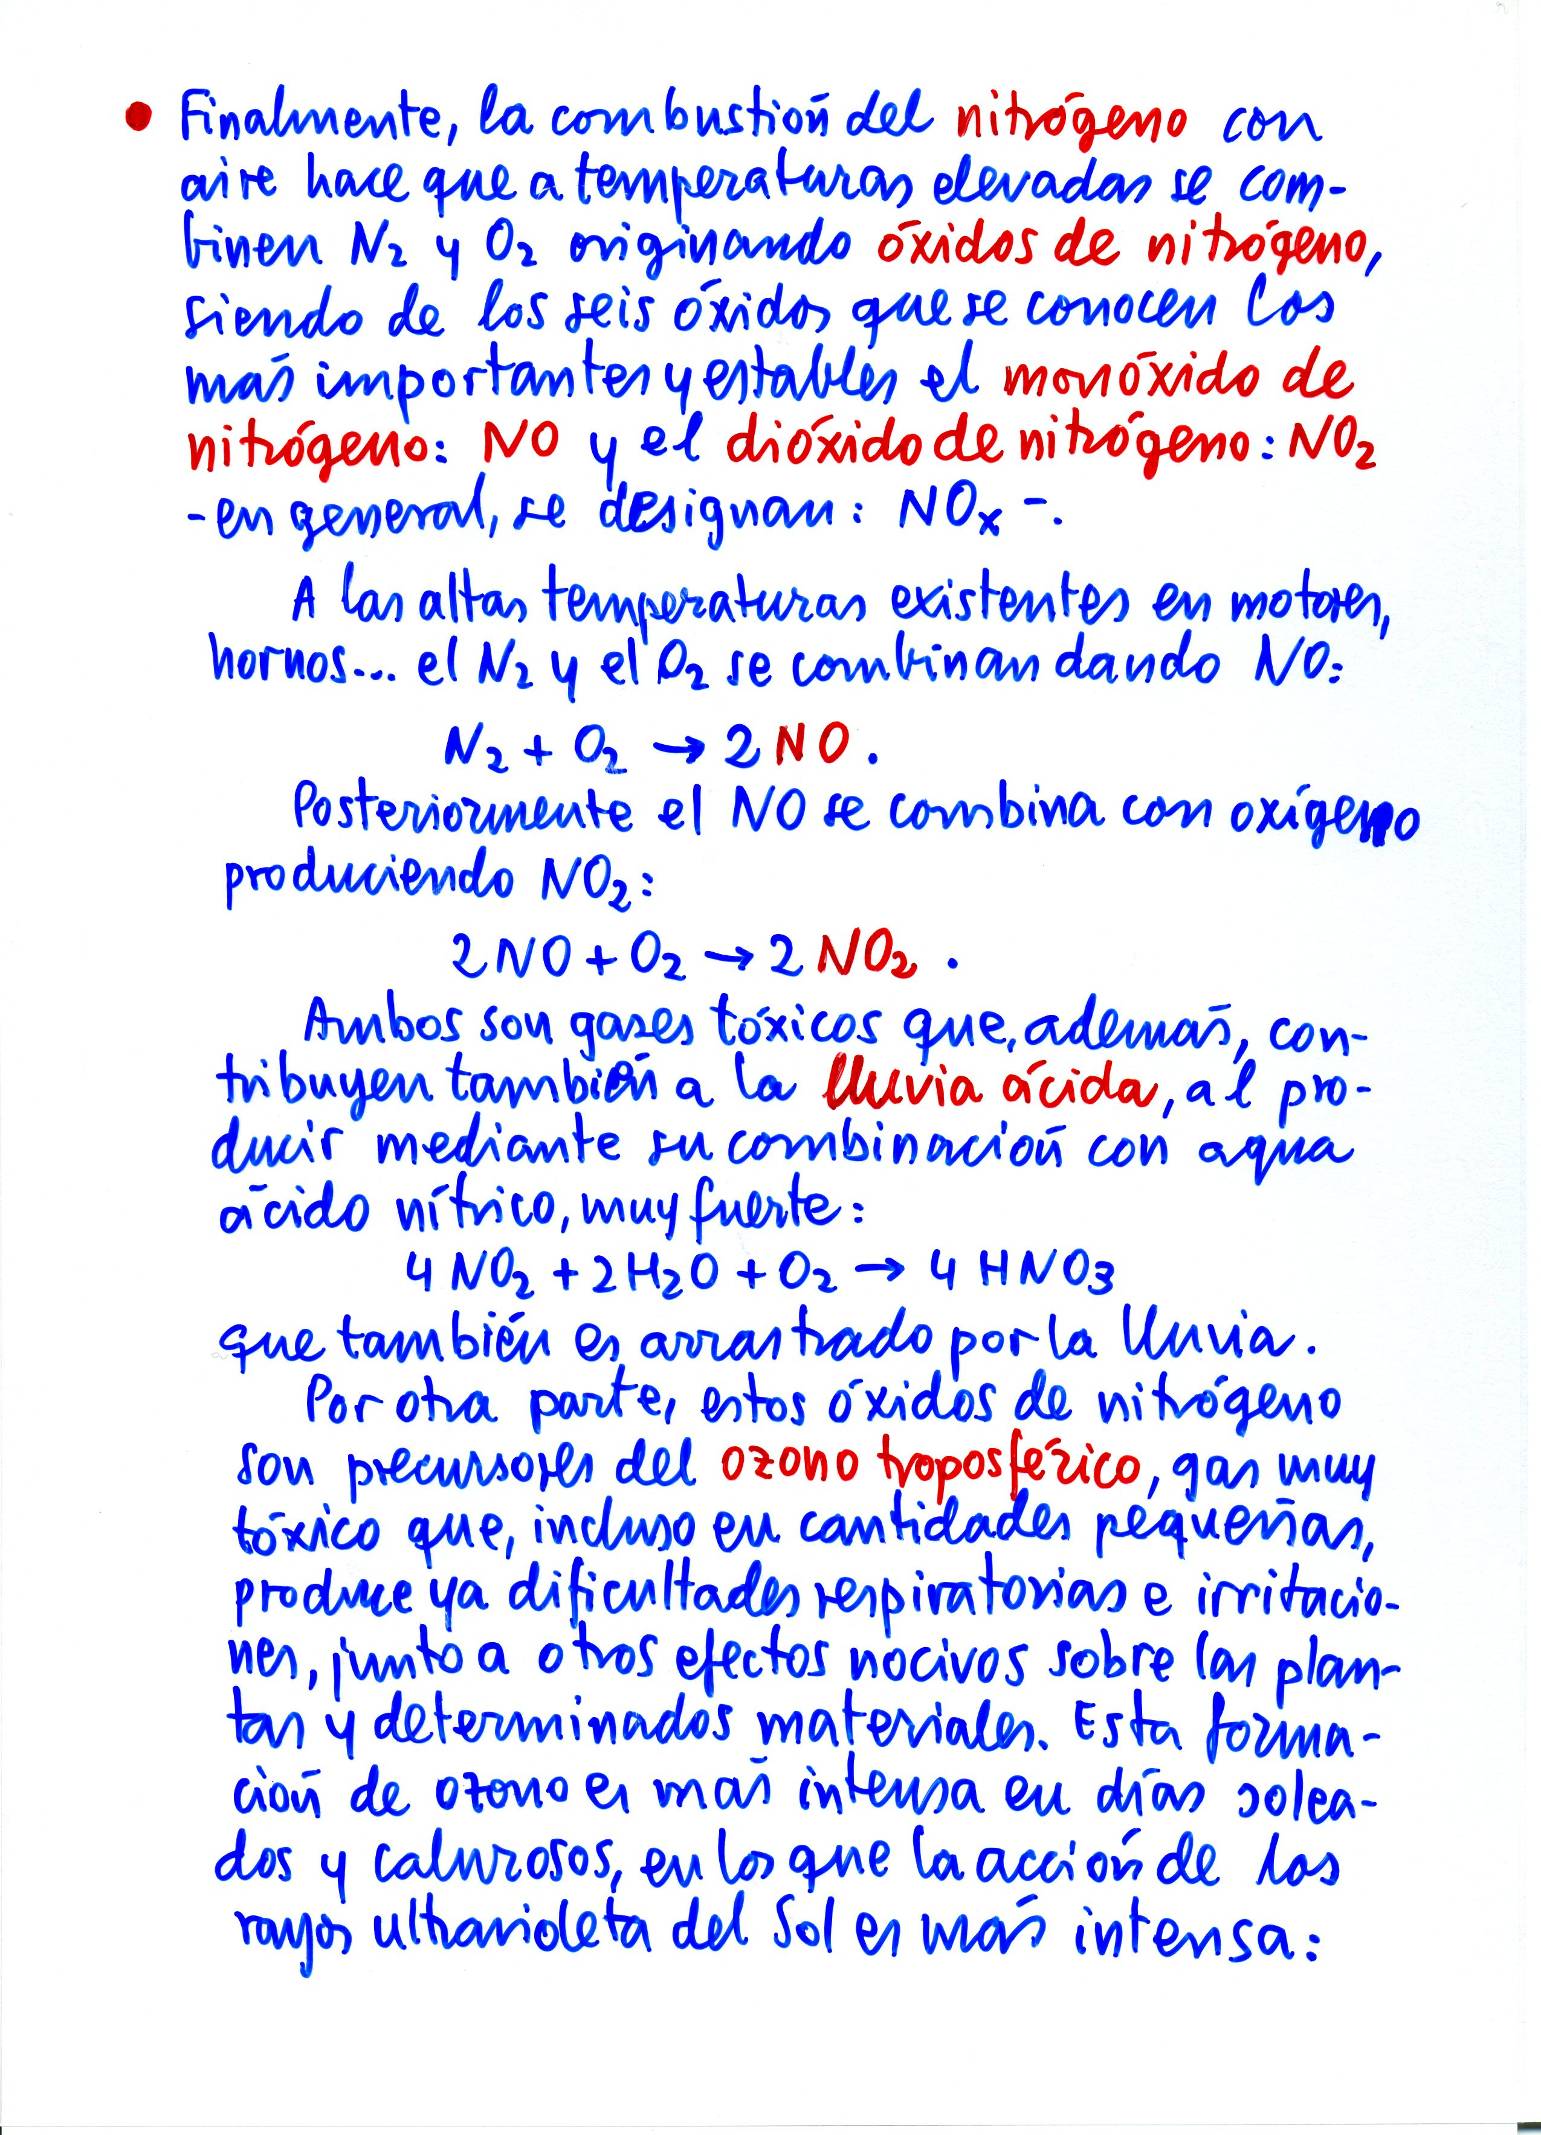 • Finalmente, la combustión del nitrógeno con
aire hace que a temperaturas elevadas se com-
binen N₂ y O₂ originando óxidos de nitrógeno,
siendo de los seis óxidos que se conocen los
más importantes y estables el monóxido de
nitrógeno: NO y el dióxido de nitrógeno: NO₂
-en general, se designan: NOₓ -.
A las altas temperaturas existentes en motores,
hornos... el N₂ y el O₂ se combinan dando NO:
N₂ + O₂ → 2 NO.
Posteriormente el NO se combina con oxígeno
produciendo NO₂:
2 NO + O₂ → 2 NO₂ .
Ambos son gases tóxicos que, además, con-
tribuyen también a la lluvia ácida, al pro-
ducir mediante su combinación con agua
ácido nítrico, muy fuerte:
4 NO₂ + 2 H₂O + O₂ → 4 HNO₃
que también es arrastrado por la lluvia.
Por otra parte, estos óxidos de nitrógeno
son precursores del ozono troposférico, gas muy
tóxico que, incluso en cantidades pequeñas,
produce ya dificultades respiratorias e irritacio-
nes, junto a otros efectos nocivos sobre las plan-
tas y determinados materiales. Esta forma-
ción de ozono es más intensa en días solea-
dos y calurosos, en los que la acción de los
rayos ultravioleta del Sol es más intensa: